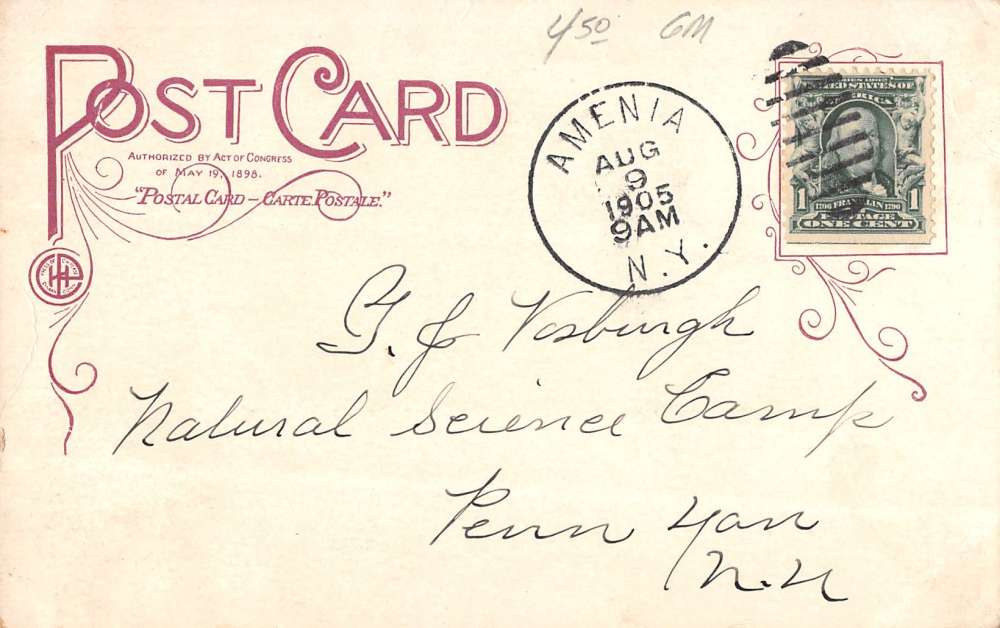 450 GM
POST CARD
AUTHORIZED BY ACT OF CONGRESS
OF MAY 19, 1898.
"POSTAL CARD – CARTE POSTALE."
AMENIA
AUG
9
1905
9AM
N.Y.
SERIES 1902
UNITED STATES OF
AMERICA
1 1790 FRANKLIN 1790 1
POSTAGE
ONE CENT
G. J Vosburgh
Natural Science Camp
Penn Yan
N.Y